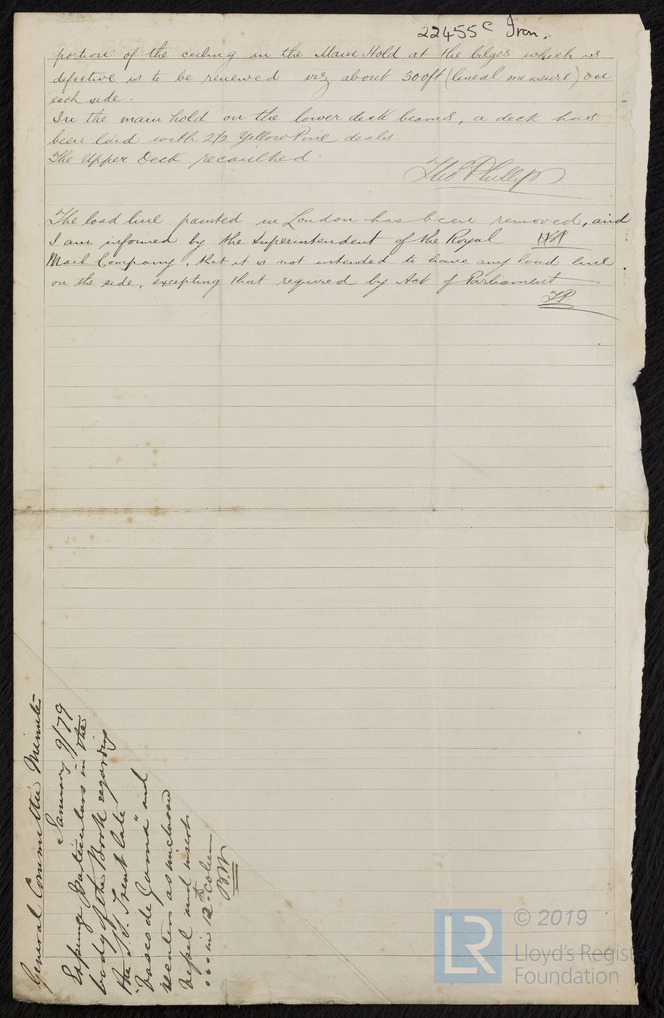 22455c Iron.
portion of the ceiling in the Main Hold at the bilges which is
defective is to be renewed viz about 300ft (lineal measure) on
each side.
In the main hold on the lower deck beams, a deck has
been laid with 2½ Yellow Pine deals
The Upper Deck recaulked.
Thos Phillips
The load line painted in London has been removed, and
I am informed by the Superintendent of the Royal
Mail Company, that it is not intended to have any load line
on the side, excepting that required by Act of Parliament
TP
General Committee Minute
January 9/79
Expunge Particulars in the
body of the Book regarding
the S.S. Trent late
"Vasco de Gama" and
vessel and insert
in 12th Column
B.W.
© 2019
LR
Lloyd's Register
Foundation